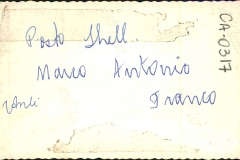 Posto Shell
Marco Antonio
Franco
CA-0317